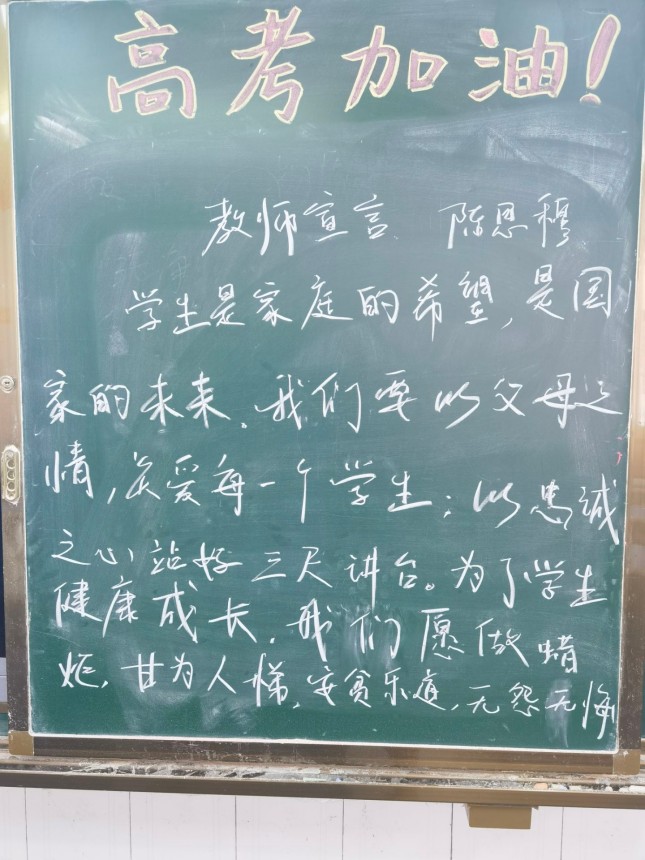 高考加油！
教师宣言 陈恩穆
学生是家庭的希望，是国
家的未来。我们要以父母之
情，关爱每一个学生；以忠诚
之心站好三尺讲台。为了学生
健康成长，我们愿做蜡
炬，甘为人梯，安贫乐道，无怨无悔